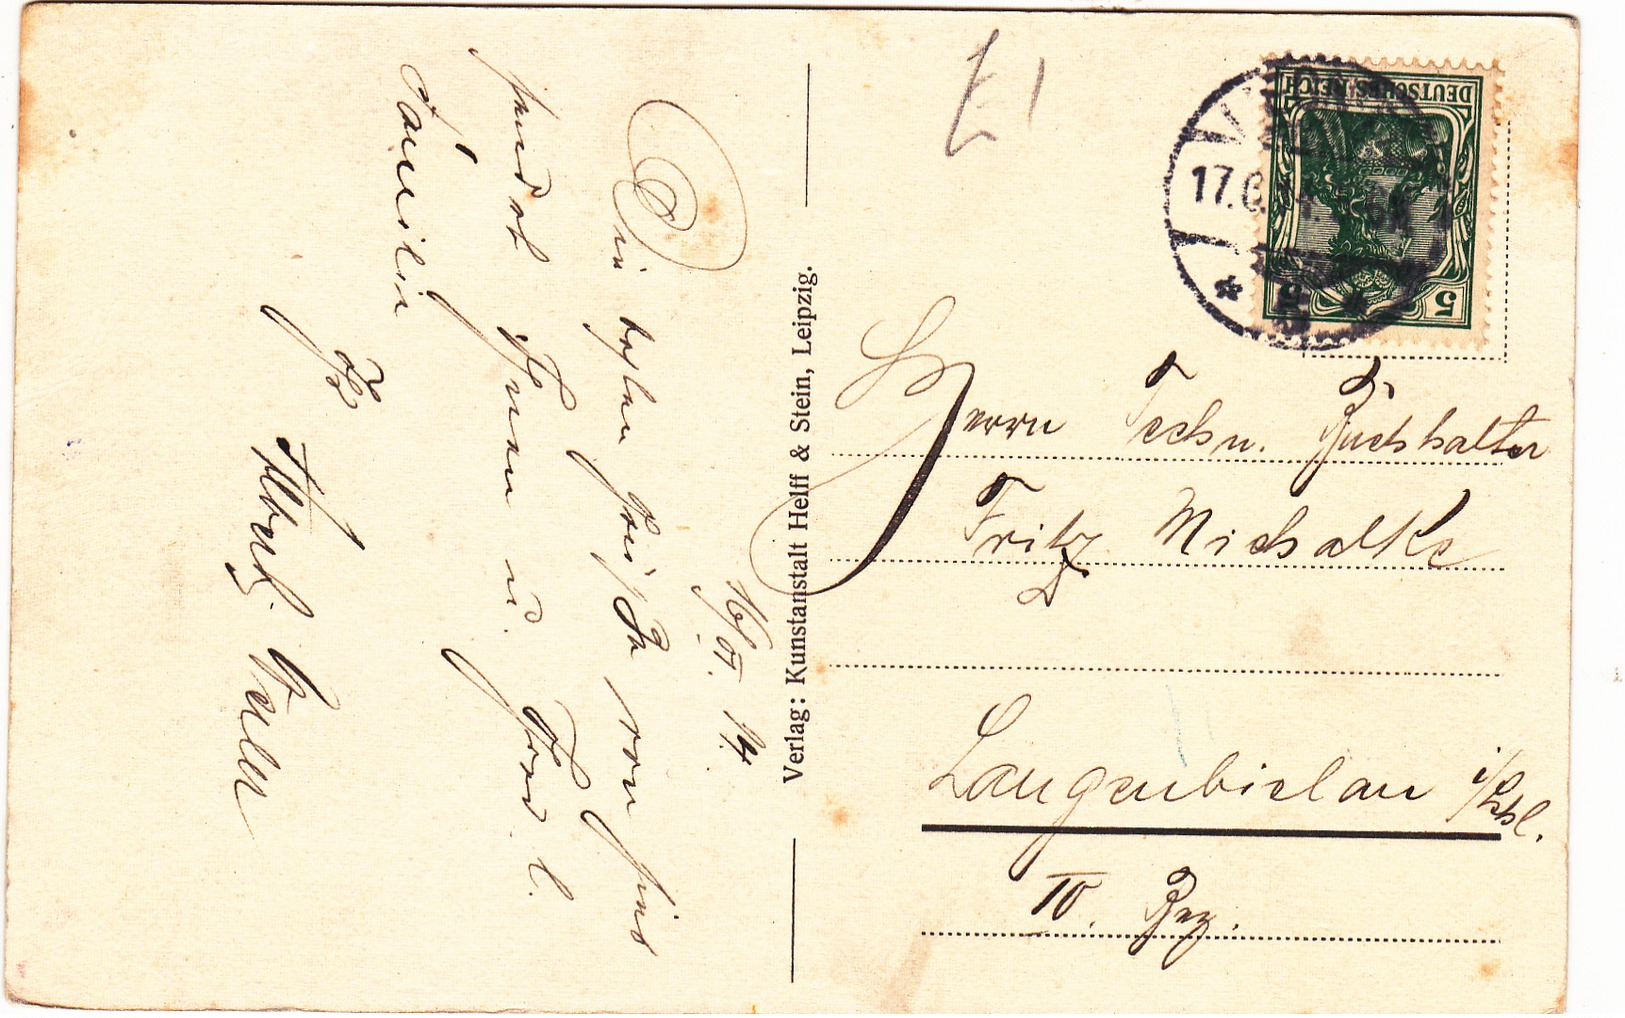 16/VI. 14.
Die besten Grüße von hier
sendet Ihnen u. Ihrer l.
Familie
Ihr
Verlag: Kunstanstalt Helff & Stein, Leipzig.
E 1
DEUTSCHES REICH
5 5
17.6.
Herrn Techn. Buchhalter
Fritz Michalke
Langenbielau i/Schl.
IV. Bez.